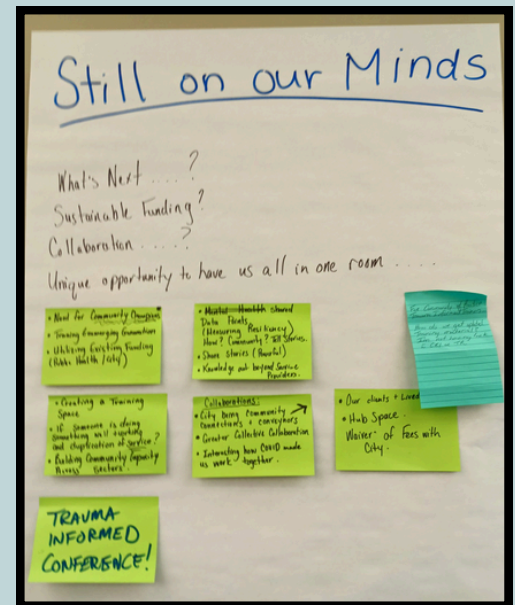 Still on our Minds
What's Next ....?
Sustainable Funding?
Collaboration ....?
Unique opportunity to have us all in one room ....
• Need for Community Champions
• Training Emerging Generation
• Utilizing Existing Funding
(Public Health / City)
• Mental Health shared
Data Points
(Measuring Resiliency)
How? Community? Tell Stories.
• Share Stories (Powerful)
• Knowledge out beyond Service
Providers.
• Creating a Training
Space
• If someone is doing
something well
and duplication of service?
• Building Community Capacity
Across Sectors.
Collaborations:
• City being community
connections + conveyors
• Greater Collective Collaboration
• Interesting how COVID made
us work together.
• Our clients + Lived
• Hub Space.
Waiver of Fees with
City.
TRAUMA
INFORMED
CONFERENCE!